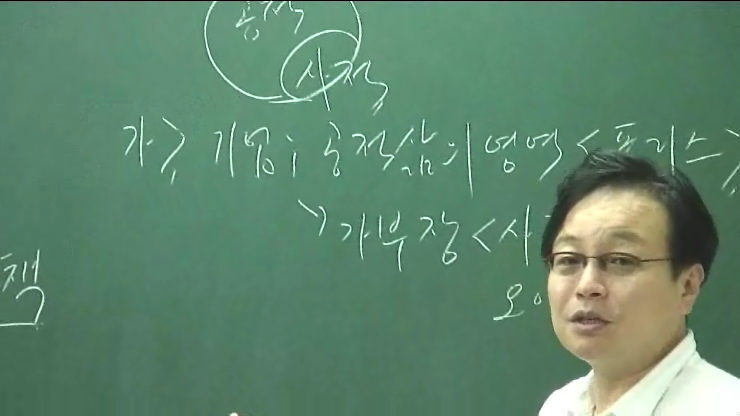 공적
사적
가> 기업 : 공적 삶의 영역 < 폴리스 >
> 가부장 < 사
오이
책